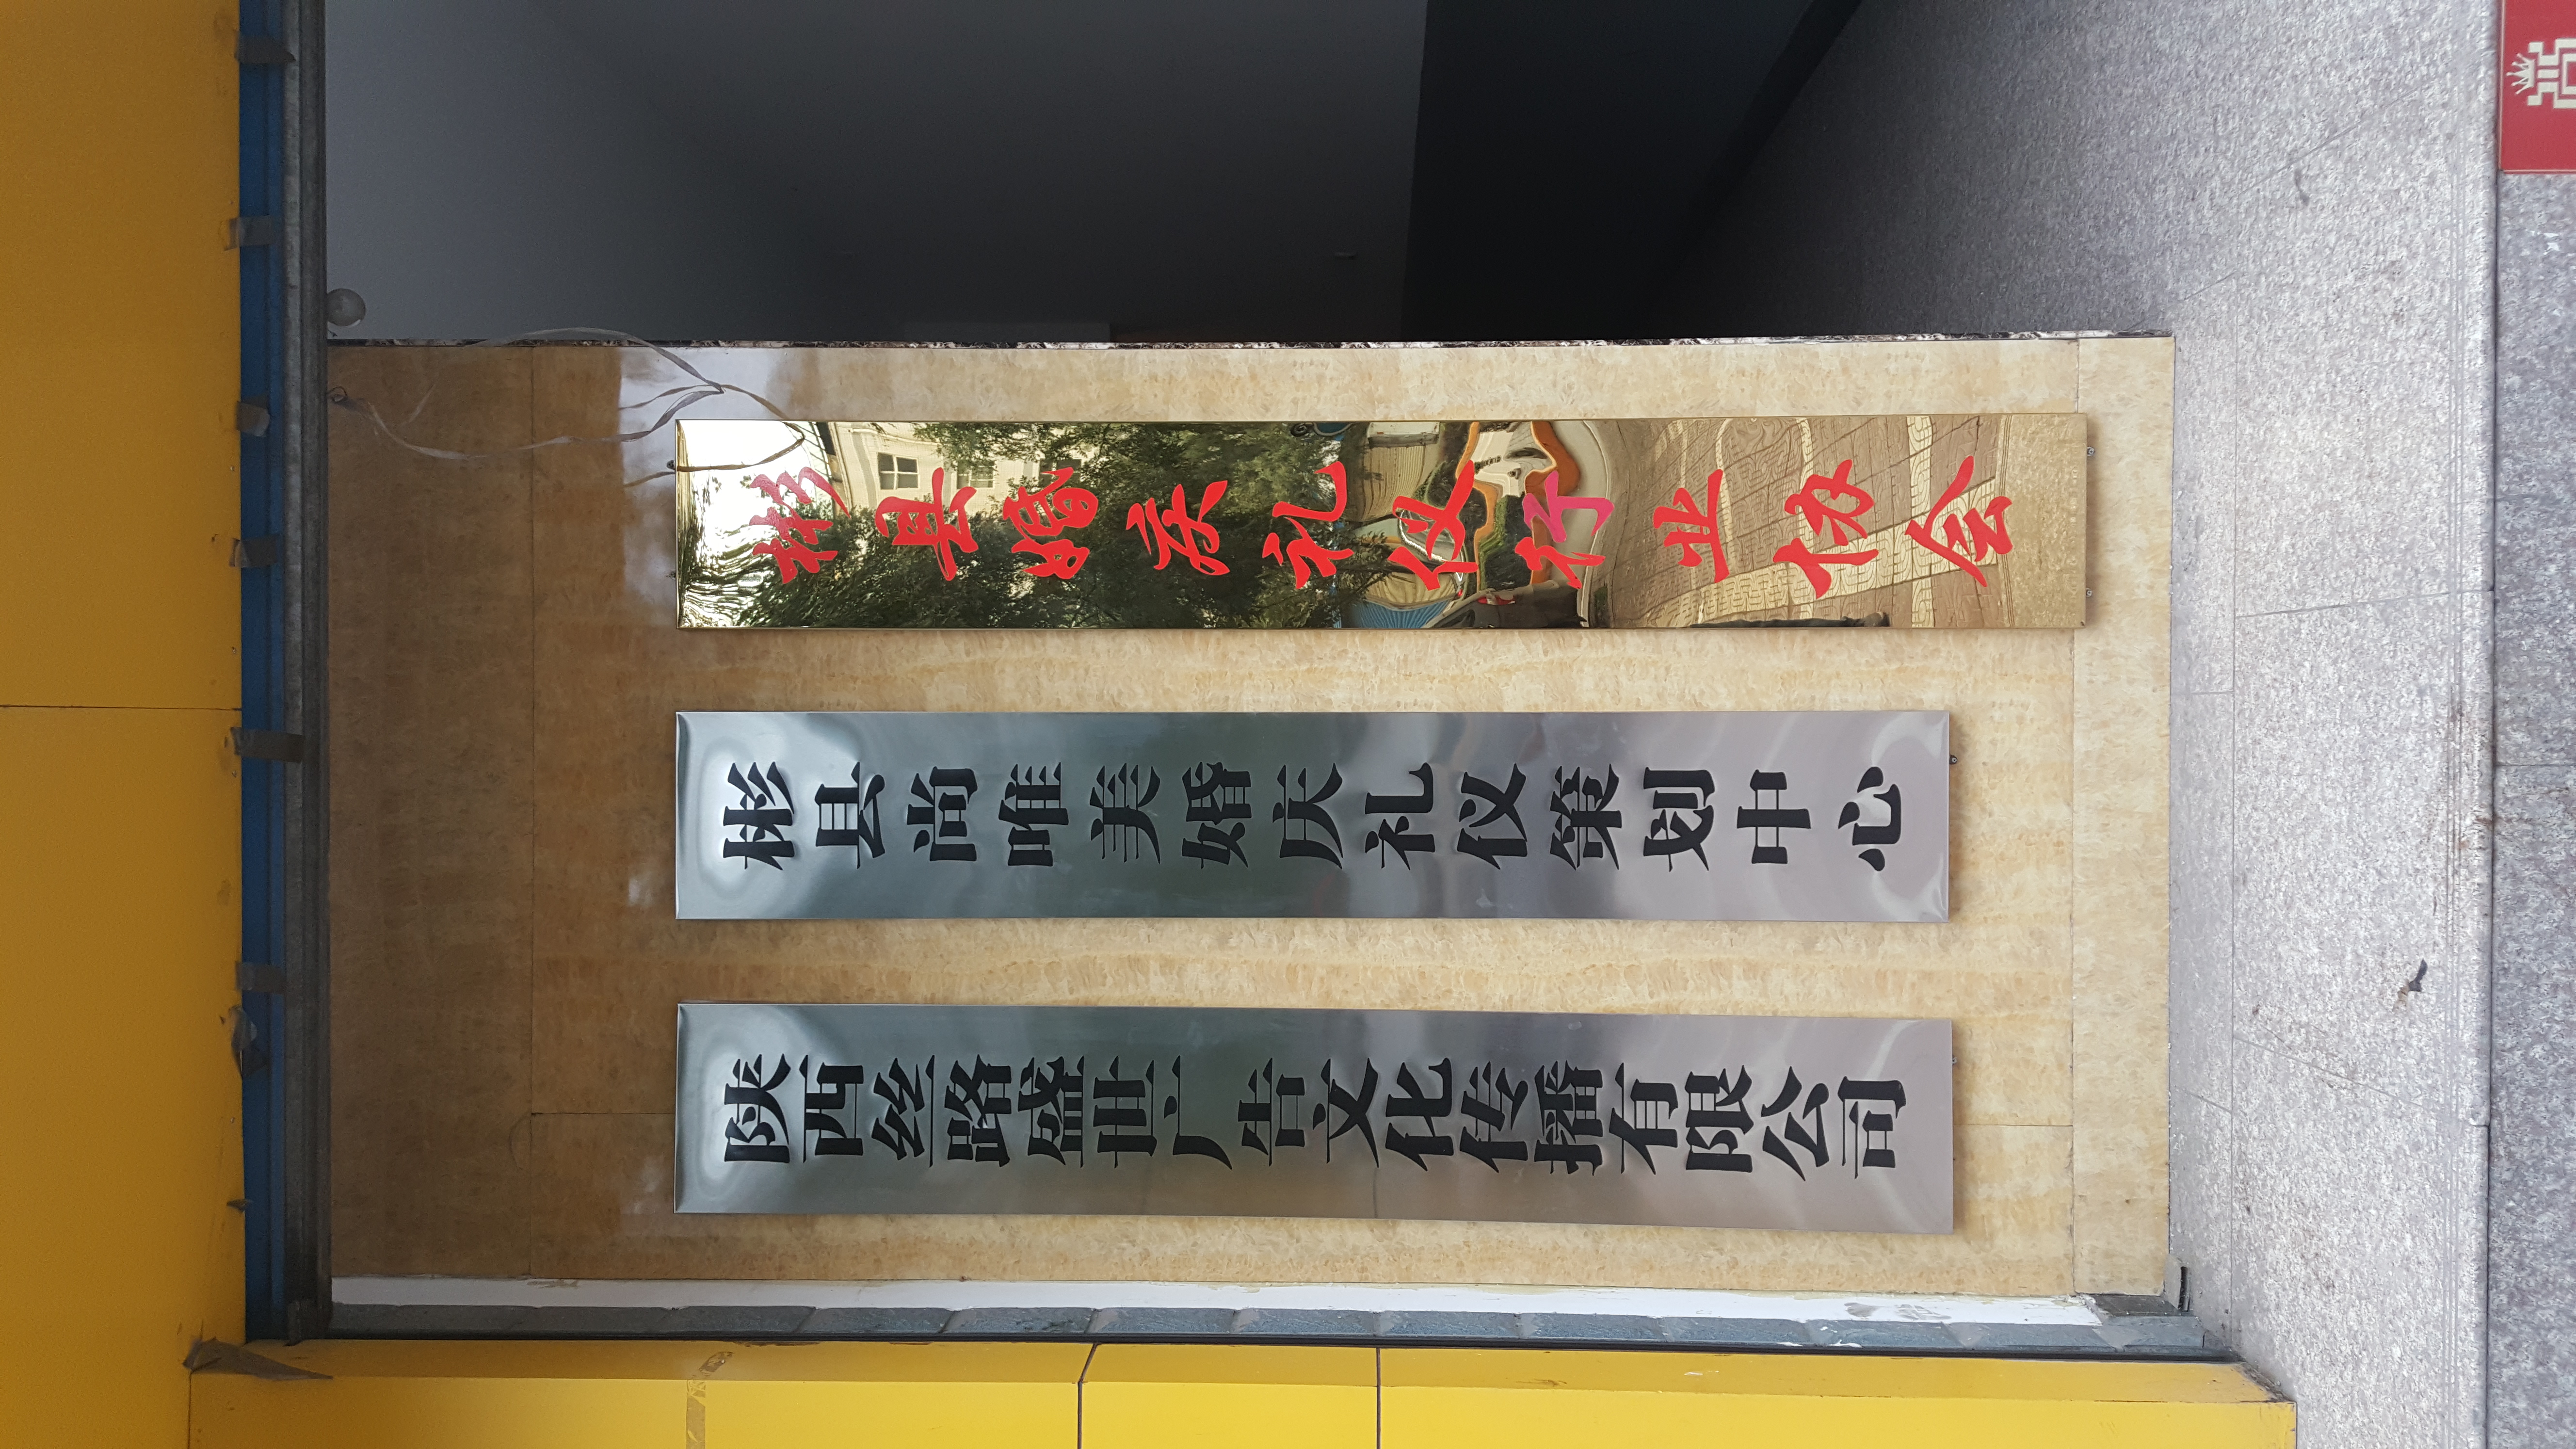 彬县婚庆礼仪行业协会
彬县尚唯美婚庆礼仪策划中心
陕西丝路盛世广告文化传播有限公司